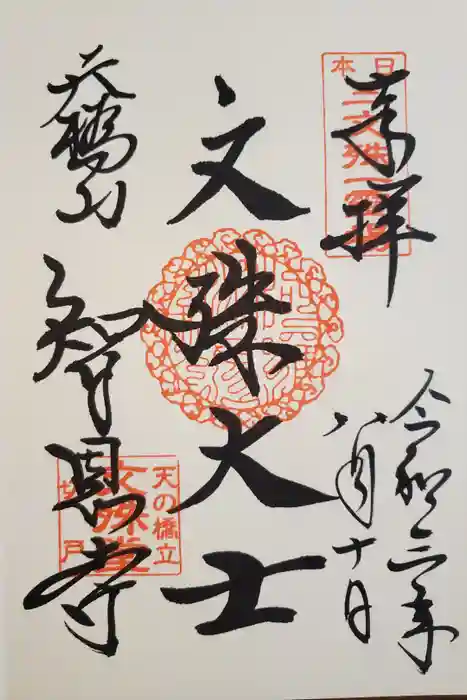 奉拝
日本三文殊一霊場
令和三年
八月十日
文殊大士
天橋山
智恩寺
天の橋立
文殊堂
切戸